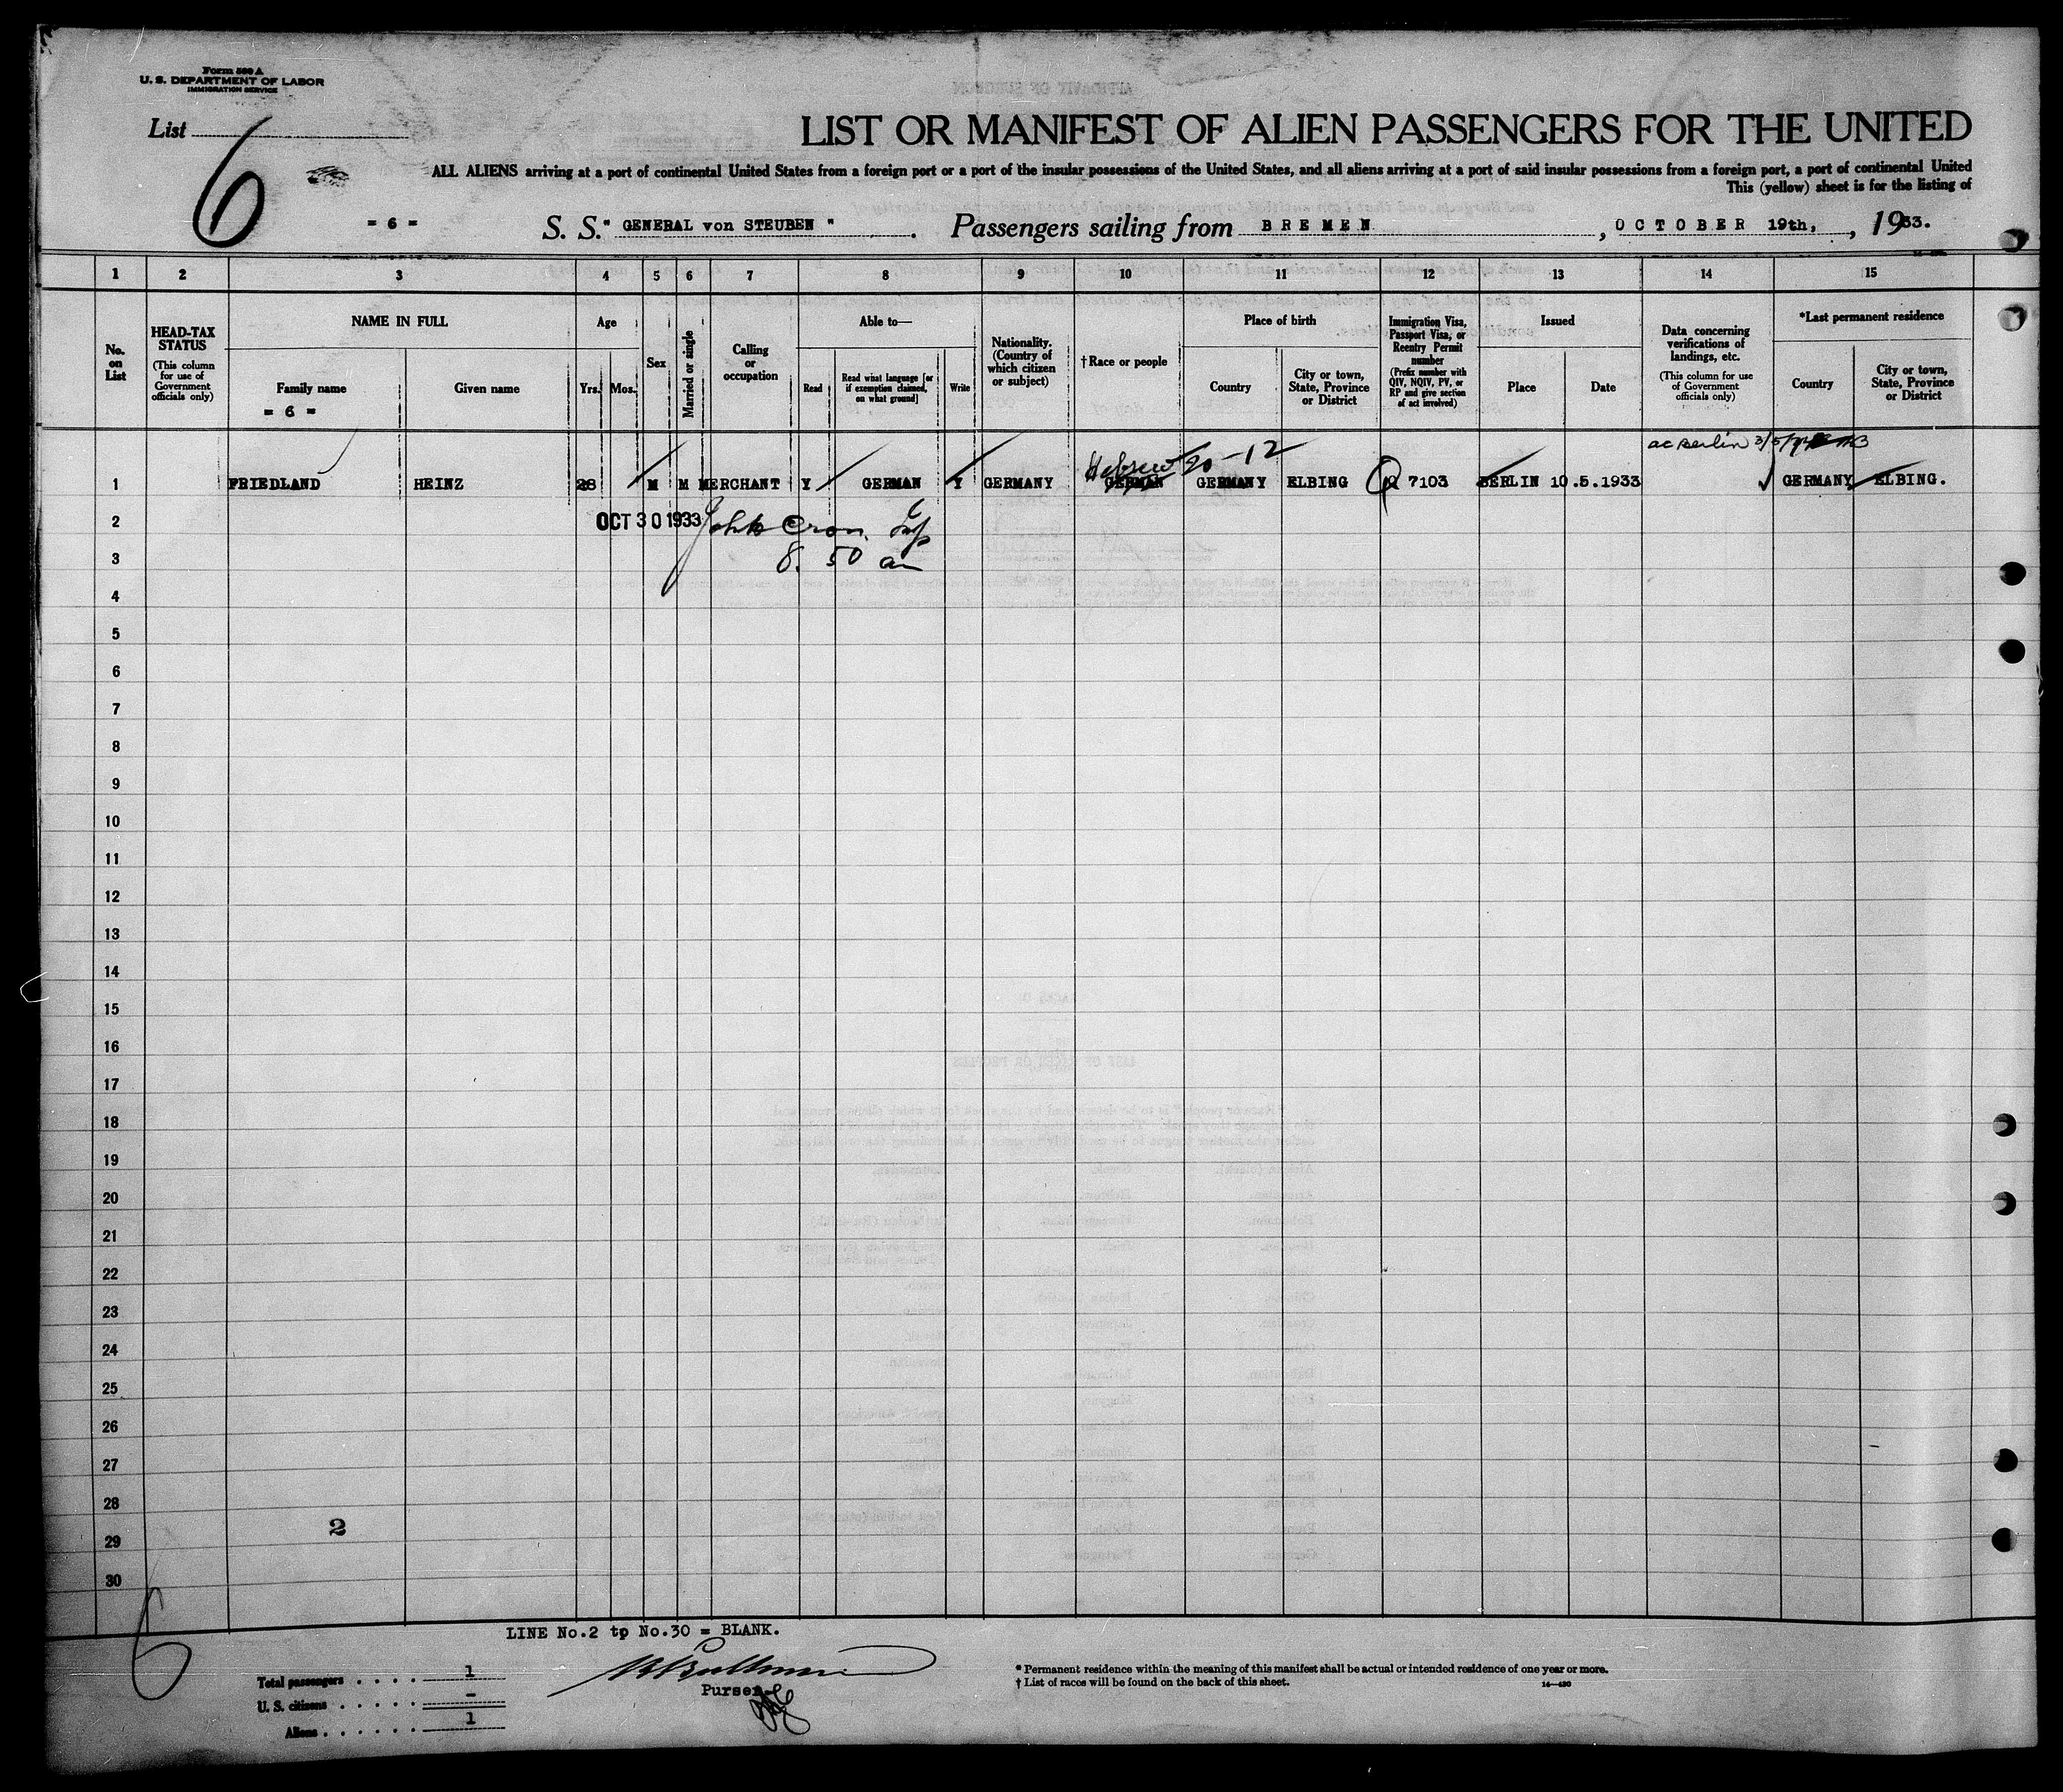 Form 500 A
U. S. DEPARTMENT OF LABOR
IMMIGRATION SERVICE
List
6
LIST OR MANIFEST OF ALIEN PASSENGERS FOR THE UNITED
ALL ALIENS arriving at a port of continental United States from a foreign port or a port of the insular possessions of the United States, and all aliens arriving at a port of said insular possessions from a foreign port, a port of continental United
This (yellow) sheet is for the listing of
= 6 = S. S. " GENERAL von STEUBEN " . Passengers sailing from BREMEN , OCTOBER 19th, , 1933.
1 2 3 4 5 6 7 8 9 10 11 12 13 14 15
No. on List
HEAD-TAX STATUS
(This column for use of Government officials only)
NAME IN FULL
Family name
= 6 =
Given name
Age
Yrs. Mos.
Sex
Married or single
Calling or occupation
Able to—
Read
Read what language [or if exemption claimed, on what ground]
Write
Nationality. (Country of which citizen or subject)
†Race or people
Place of birth
Country
City or town, State, Province or District
Immigration Visa, Passport Visa, or Reentry Permit number
(Prefix number with QIV, NQIV, PV, or RP and give section of act involved)
Issued
Place
Date
Data concerning verifications of landings, etc.
(This column for use of Government officials only)
*Last permanent residence
Country
City or town, State, Province or District
ac Berlin
Hebrew 20-12
1 FRIEDLAND HEINZ 28 M M MERCHANT Y GERMAN Y GERMANY GERMAN GERMANY ELBING Q 7103 BERLIN 10.5.1933 GERMANY ELBING.
2 OCT 30 1933 John Cron
3 8.50 am
4
5
6
7
8
9
10
11
12
13
14
15
16
17
18
19
20
21
22
23
24
25
26
27
28
2
29
30
6
LINE No.2 to No.30 = BLANK.
Total passengers . . . . 1
U. S. citizens . . . . . –
Aliens . . . . . . 1
Purser
* Permanent residence within the meaning of this manifest shall be actual or intended residence of one year or more.
† List of races will be found on the back of this sheet.
14—430